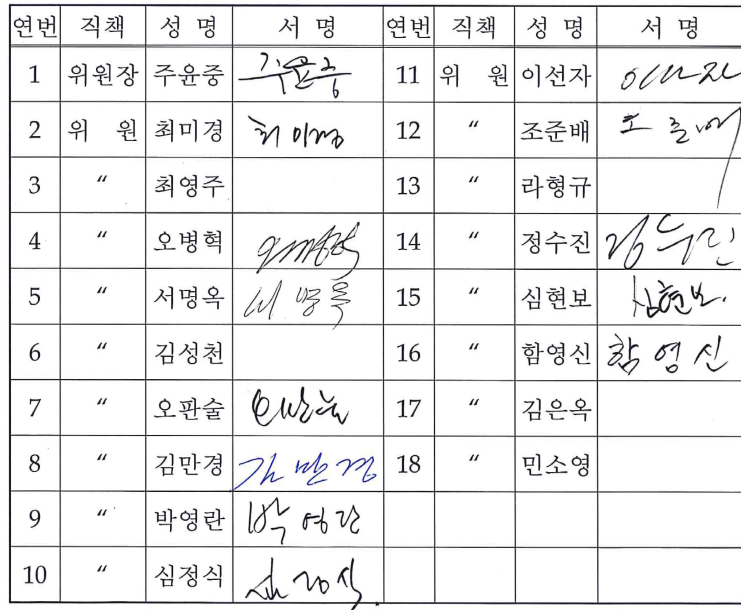 연번 직책 성 명 서 명 연번 직책 성 명 서 명
1 위원장 주윤중 주윤중 11 위 원 이선자 이선자
2 위 원 최미경 최미경 12 〃 조준배 조준배
3 〃 최영주 13 〃 라형규
4 〃 오병혁 오병혁 14 〃 정수진 정수진
5 〃 서명옥 서명옥 15 〃 심현보 심현보
6 〃 김성천 16 〃 함영신 함영신
7 〃 오판술 오판술 17 〃 김은옥
8 〃 김만경 김만경 18 〃 민소영
9 〃 박영란 박영란
10 〃 심정식 심정식